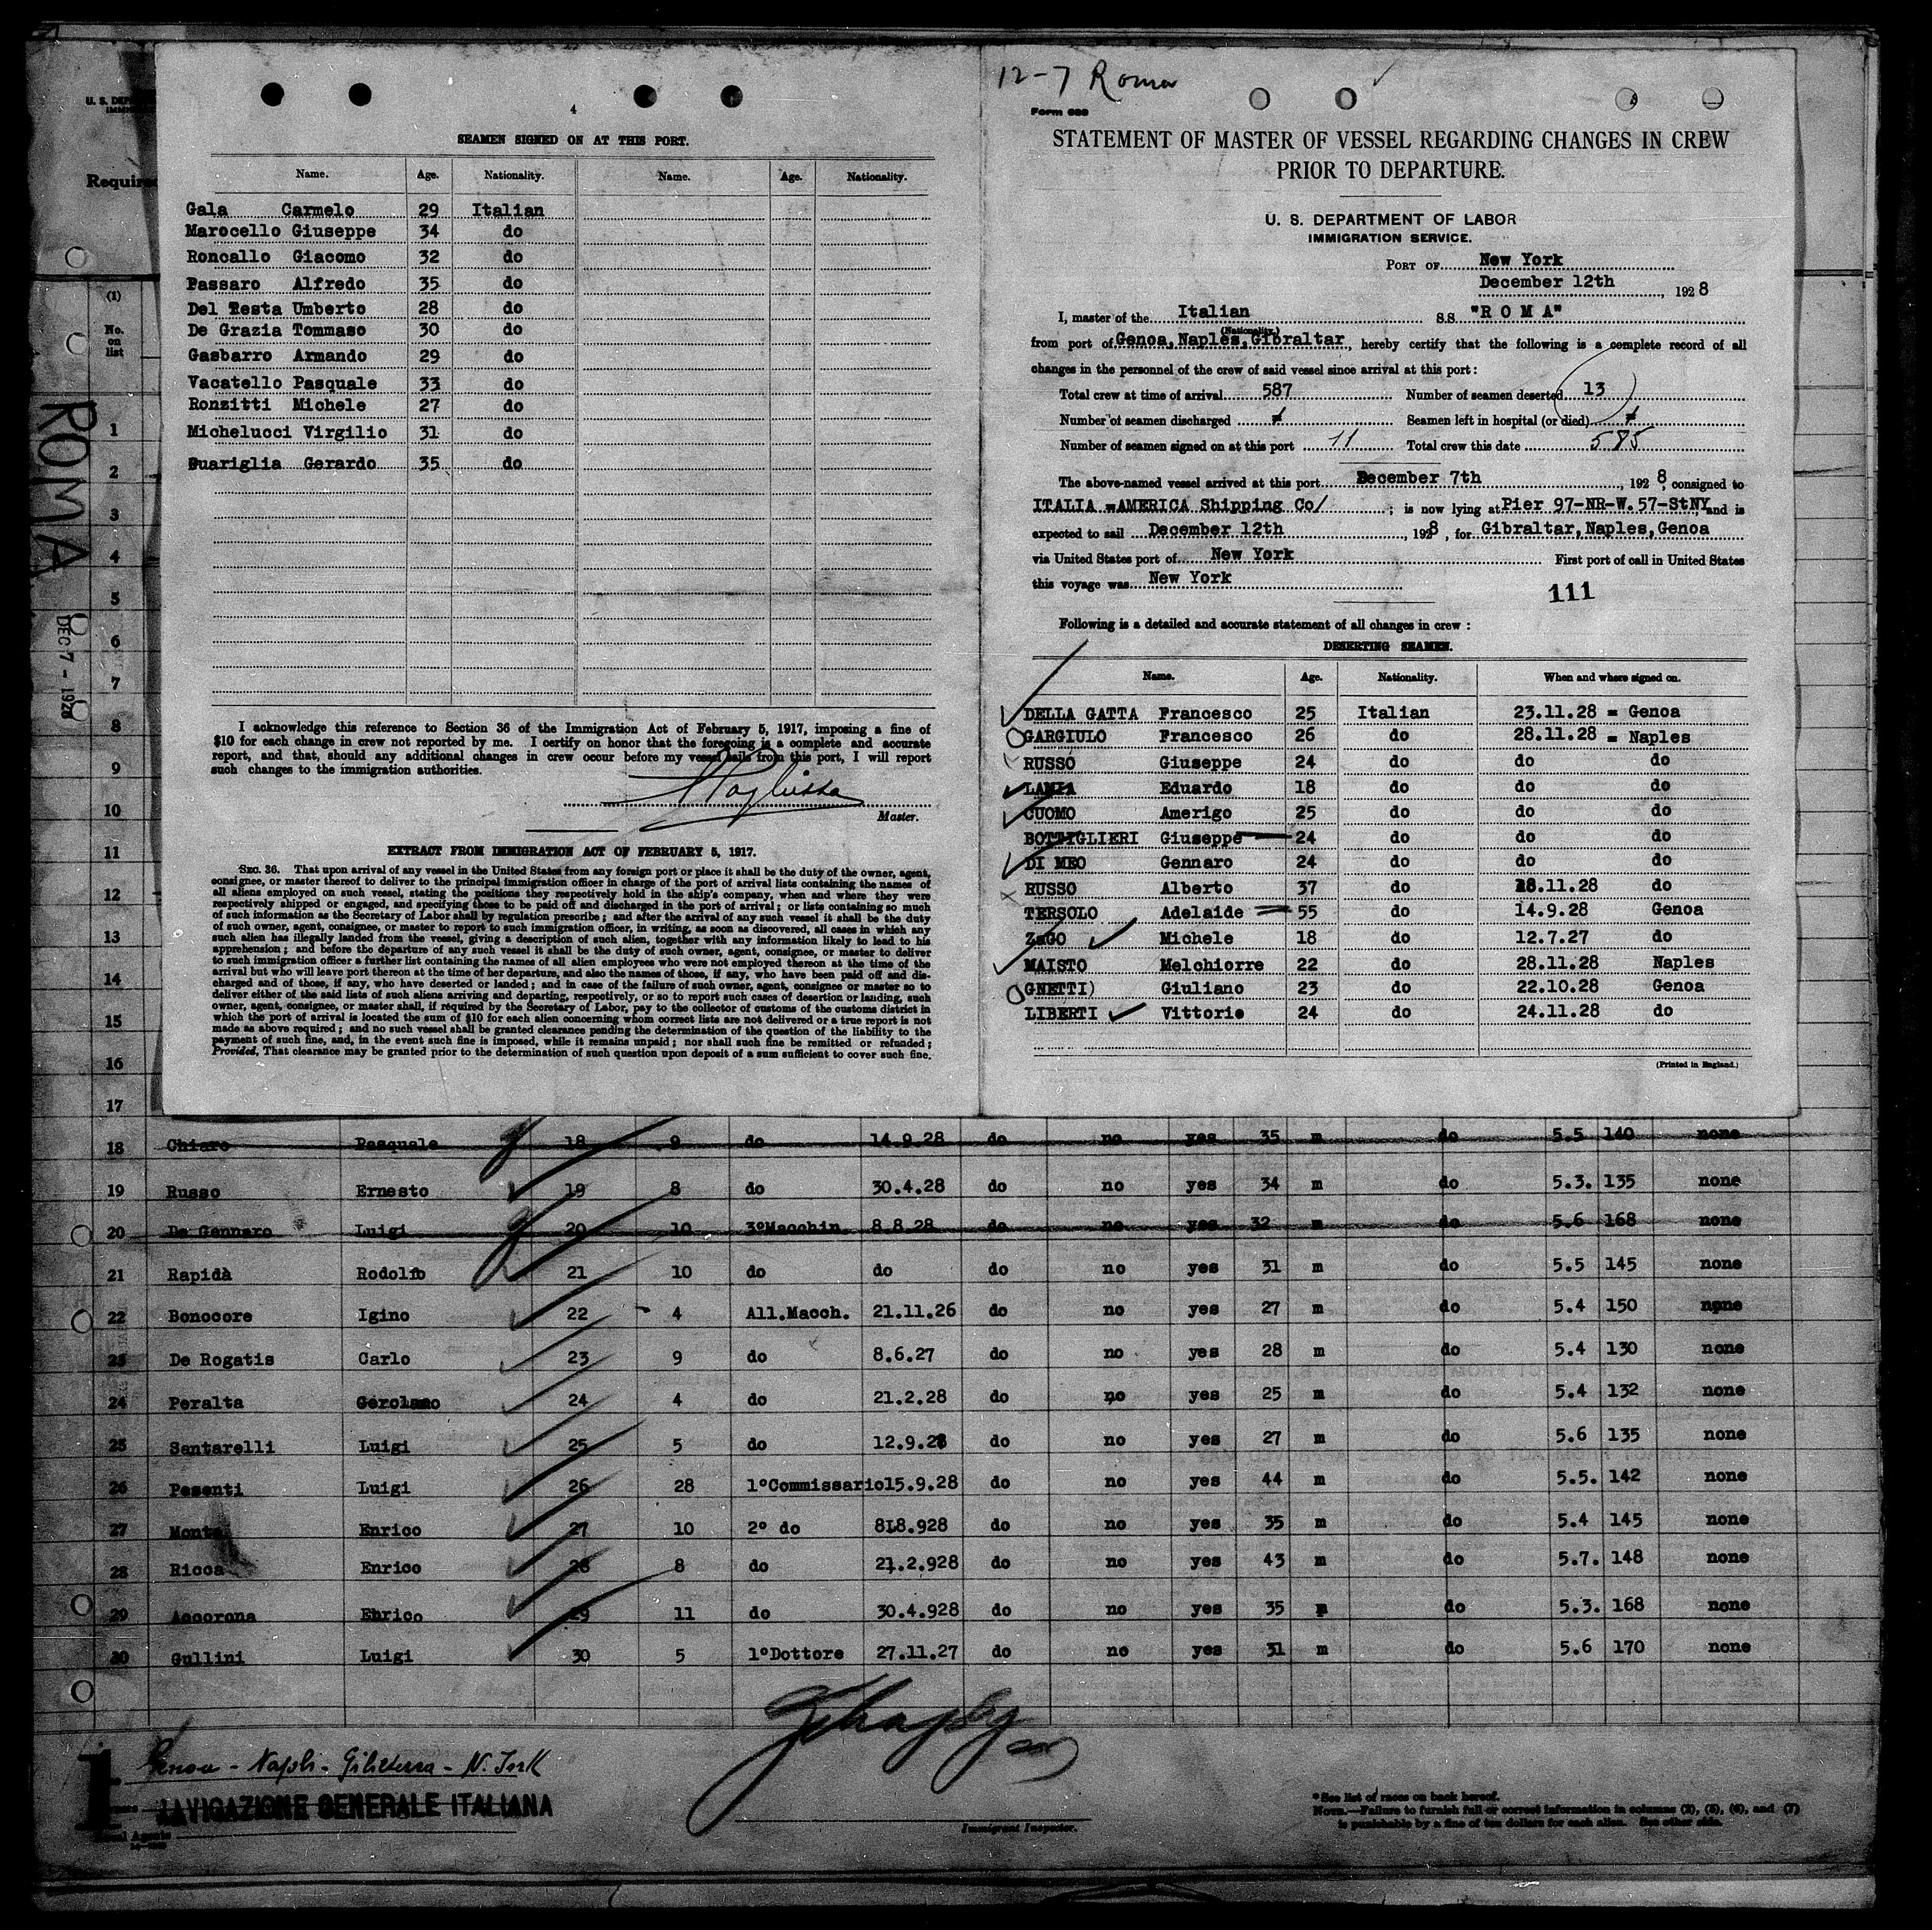 4
SEAMEN SIGNED ON AT THIS PORT.
Name. Age. Nationality. Name. Age. Nationality.
Gala Carmelo 29 Italian
Marocello Giuseppe 34 do
Roncallo Giacomo 32 do
Passaro Alfredo 35 do
Del Testa Umberto 28 do
De Grazia Tommaso 30 do
Gasbarro Armando 29 do
Vacatello Pasquale 33 do
Ronzitti Michele 27 do
Michelucci Virgilio 31 do
Guariglia Gerardo 35 do
I acknowledge this reference to Section 36 of the Immigration Act of February 5, 1917, imposing a fine of
$10 for each change in crew not reported by me. I certify on honor that the foregoing is a complete and accurate
report, and that, should any additional changes in crew occur before my vessel sails from this port, I will report
such changes to the immigration authorities.
Master.
EXTRACT FROM IMMIGRATION ACT OF FEBRUARY 5, 1917.
SEC. 36. That upon arrival of any vessel in the United States from any foreign port or place it shall be the duty of the owner, agent,
consignee, or master thereof to deliver to the principal immigration officer in charge of the port of arrival lists containing the names of
all aliens employed on such vessel, stating the positions they respectively hold in the ship's company, when and where they were
respectively shipped or engaged, and specifying those to be paid off and discharged in the port of arrival; or lists containing so much
of such information as the Secretary of Labor shall by regulation prescribe; and after the arrival of any such vessel it shall be the duty
of such owner, agent, consignee, or master to report to such immigration officer, in writing, as soon as discovered, all cases in which any
such alien has illegally landed from the vessel, giving a description of such alien, together with any information likely to lead to his
apprehension; and before the departure of any such vessel it shall be the duty of such owner, agent, consignee, or master to deliver
to such immigration officer a further list containing the names of all alien employees who were not employed thereon at the time of the
arrival but who will leave port thereon at the time of her departure, and also the names of those, if any, who have been paid off and dis-
charged and of those, if any, who have deserted or landed; and in case of the failure of such owner, agent, consignee or master so to
deliver either of the said lists of such aliens arriving and departing, respectively, or so to report such cases of desertion or landing, such
owner, agent, consignee, or master shall, if required by the Secretary of Labor, pay to the collector of customs of the customs district in
which the port of arrival is located the sum of $10 for each alien concerning whom correct lists are not delivered or a true report is not
made as above required; and no such vessel shall be granted clearance pending the determination of the question of the liability to the
payment of such fine, and, in the event such fine is imposed, while it remains unpaid; nor shall such fine be remitted or refunded;
Provided, That clearance may be granted prior to the determination of such question upon deposit of a sum sufficient to cover such fine.
12-7 Roma
Form 689
STATEMENT OF MASTER OF VESSEL REGARDING CHANGES IN CREW
PRIOR TO DEPARTURE.
U. S. DEPARTMENT OF LABOR
IMMIGRATION SERVICE.
PORT OF New York
December 12th, 1928
I, master of the Italian S.S. "ROMA"
(Nationality.)
from port of Genoa, Naples, Gibraltar, hereby certify that the following is a complete record of all
changes in the personnel of the crew of said vessel since arrival at this port:
Total crew at time of arrival 587 Number of seamen deserted 13
Number of seamen discharged Seamen left in hospital (or died)
Number of seamen signed on at this port 11 Total crew this date 585
The above-named vessel arrived at this port December 7th, 1928, consigned to
ITALIA =AMERICA Shipping Co/; is now lying at Pier 97-NR-W.57-StNY and is
expected to sail December 12th, 1928, for Gibraltar, Naples, Genoa
via United States port of New York First port of call in United States
this voyage was New York
111
Following is a detailed and accurate statement of all changes in crew:
DESERTING SEAMEN.
Name. Age. Nationality. When and where signed on.
DELLA GATTA Francesco 25 Italian 23.11.28 = Genoa
GARGIULO Francesco 26 do 28.11.28 = Naples
RUSSO Giuseppe 24 do do do
LAMIA Eduardo 18 do do do
CUOMO Amerigo 25 do do do
BOTTIGLIERI Giuseppe 24 do do do
DI MEO Gennaro 24 do do do
RUSSO Alberto 37 do 28.11.28 do
TERSOLO Adelaide 55 do 14.9.28 Genoa
ZaGO Michele 18 do 12.7.27 do
MAISTO Melchiorre 22 do 28.11.28 Naples
GNETTI) Giuliano 23 do 22.10.28 Genoa
LIBERTI Vittorio 24 do 24.11.28 do
(Printed in England.)
Required
(1)
No.
on
list
ROMA
DEC 7 - 1928
1
2
3
4
5
6
7
8
9
10
11
12
13
14
15
16
17
18 Chiaro Pasquale 18 9 do 14.9.28 do no yes 35 m do 5.5 140 none
19 Russo Ernesto 19 8 do 30.4.28 do no yes 34 m do 5.3. 135 none
20 De Gennaro Luigi 20 10 3°Macchin. 8.8.28 do no yes 32 m do 5.6 168 none
21 Rapidà Rodolfo 21 10 do do do no yes 31 m do 5.5 145 none
22 Bonocore Igino 22 4 All.Macch. 21.11.26 do no yes 27 m do 5.4 150 none
23 De Rogatis Carlo 23 9 do 8.6.27 do no yes 28 m do 5.4 130 none
24 Peralta Gerolamo 24 4 do 21.2.28 do no yes 25 m do 5.4 132 none
25 Santarelli Luigi 25 5 do 12.9.28 do no yes 27 m do 5.6 135 none
26 Pesenti Luigi 26 28 1°Commissario 15.9.28 do no yes 44 m do 5.5. 142 none
27 Enrico 27 10 2° do 818.928 do no yes 35 m do 5.4 145 none
28 Ricca Enrico 28 8 do 21.2.928 do no yes 43 m do 5.7. 148 none
29 Accorona Enrico 29 11 do 30.4.928 do no yes 35 m do 5.3. 168 none
30 Gullini Luigi 30 5 1°Dottore 27.11.27 do no yes 31 m do 5.6 170 none
1
Genova - Napoli - Gibilterra - N. York
NAVIGAZIONE GENERALE ITALIANA
Immigrant Inspector.
*See list of races on back hereof.
NOTE.—Failure to furnish full or correct information in columns (2), (5), (6), and (7)
is punishable by a fine of ten dollars for each alien. See other side.